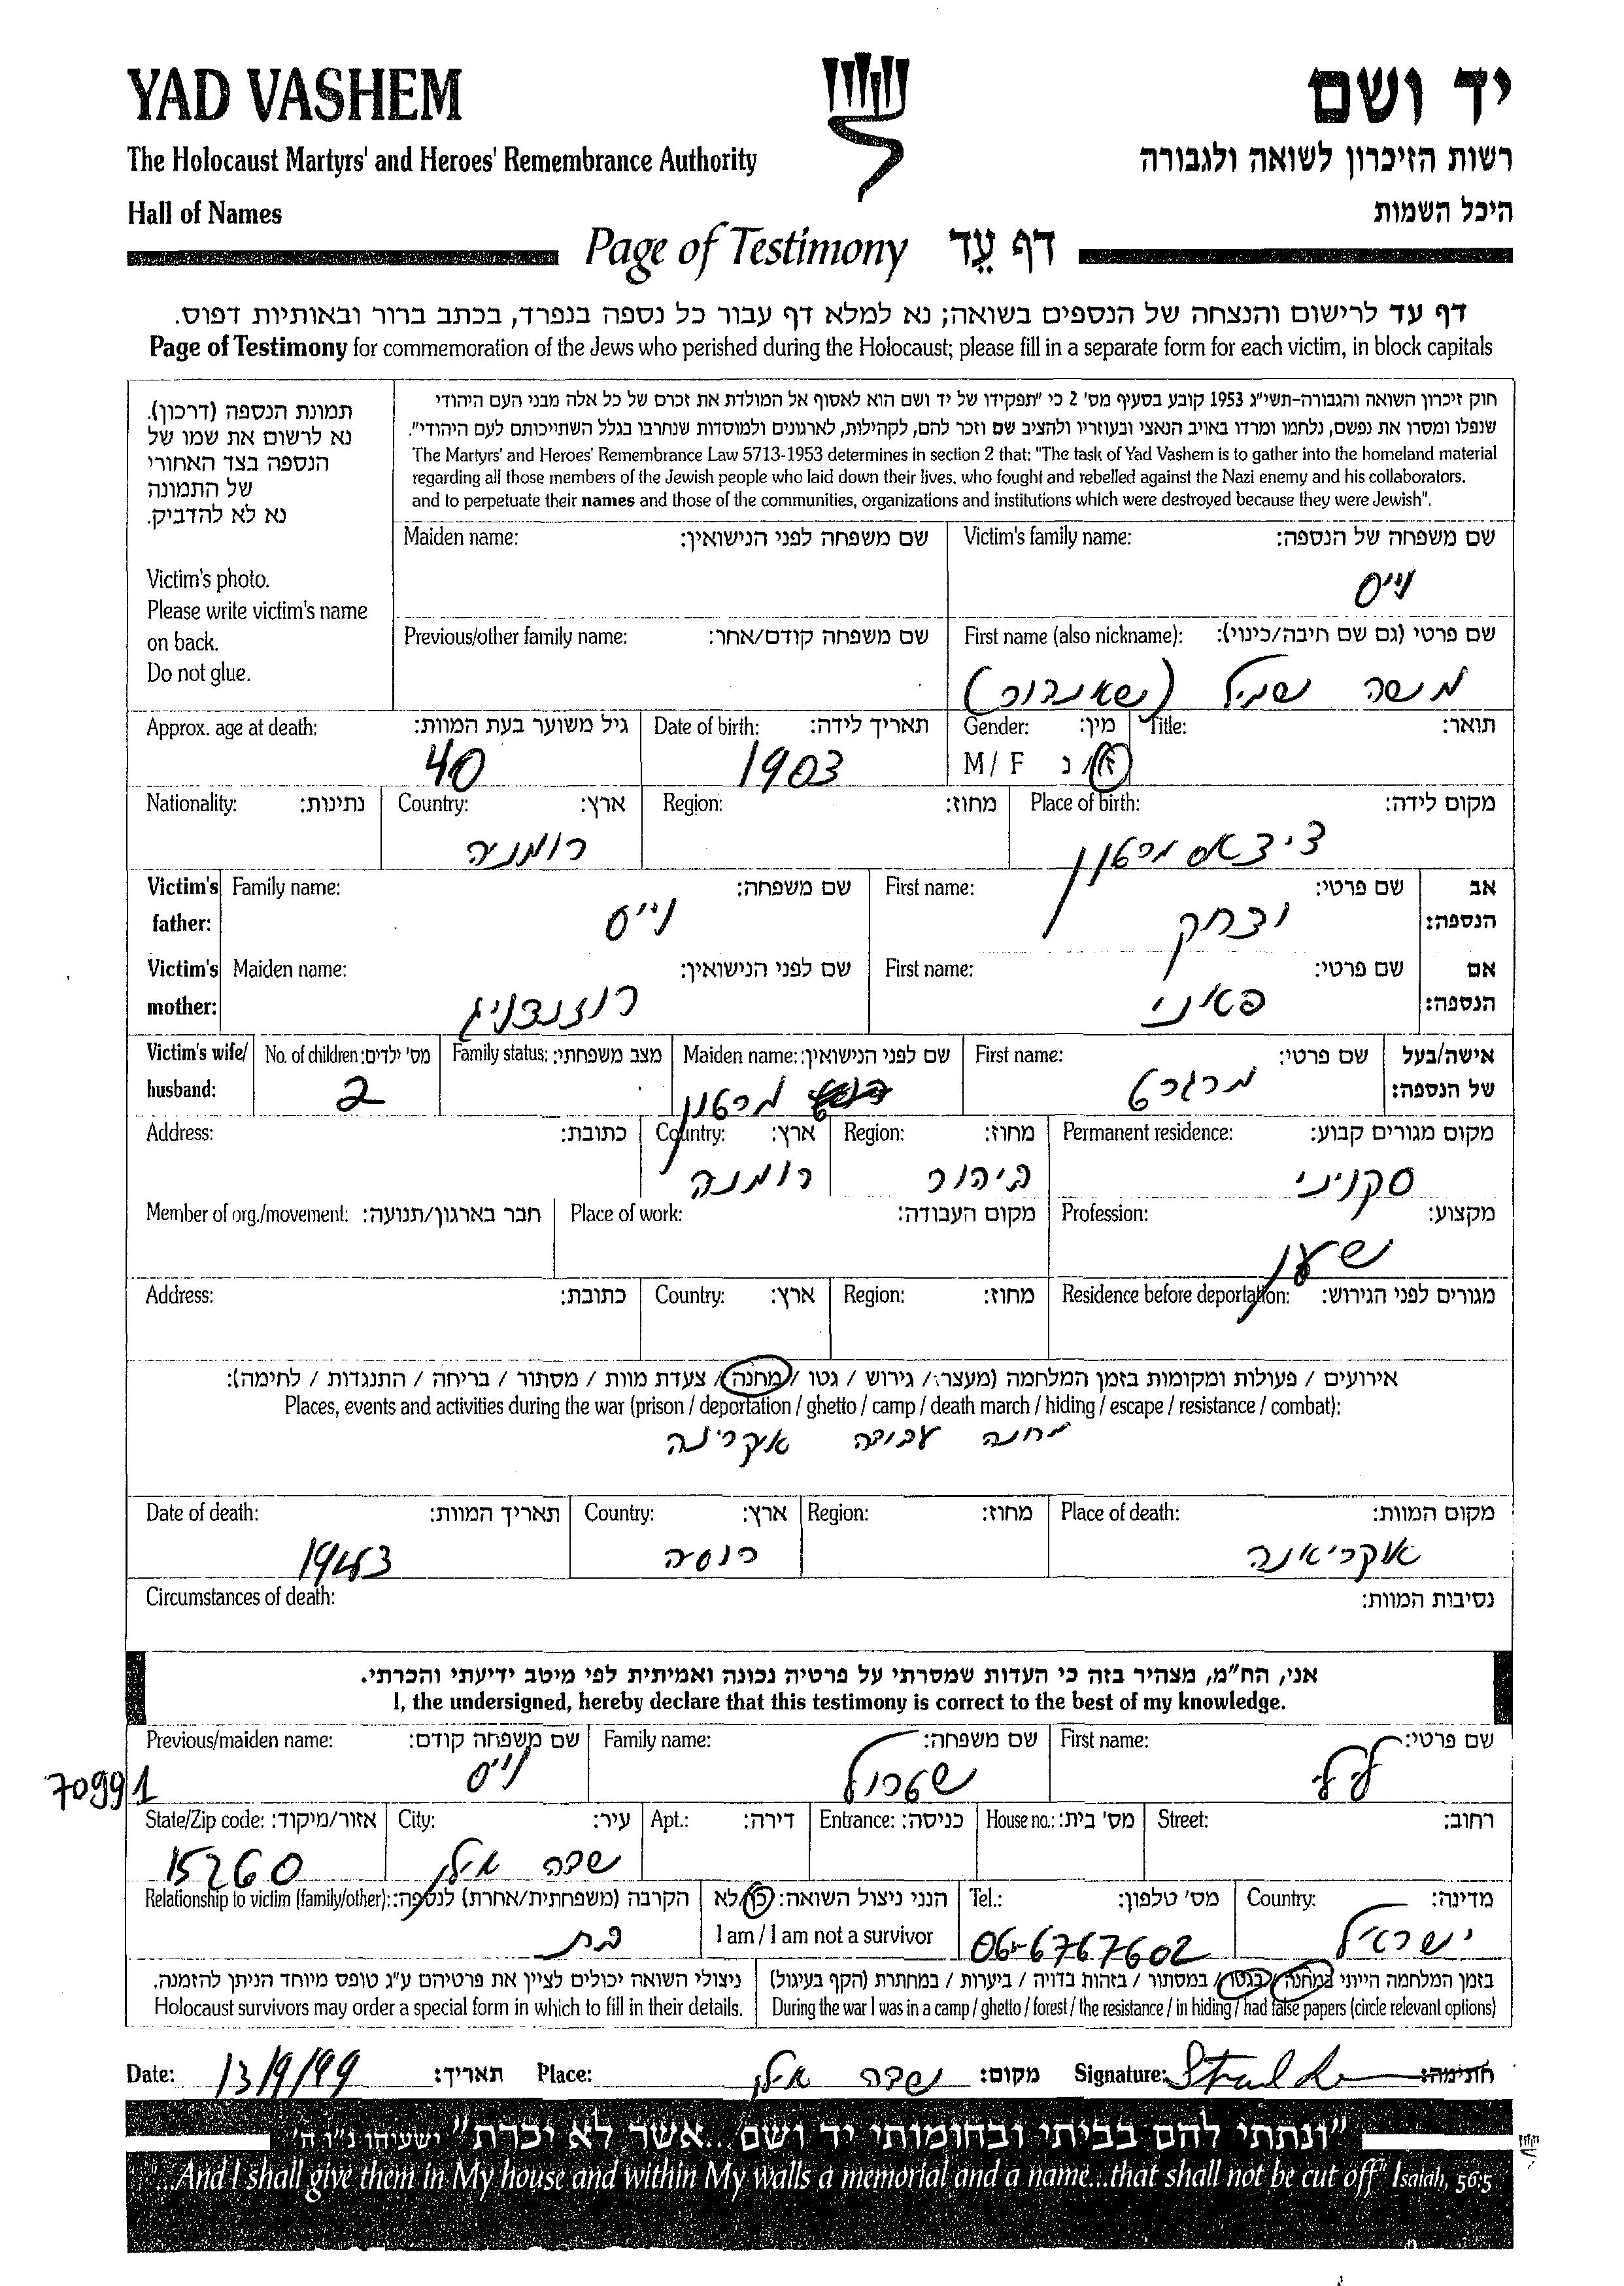 YAD VASHEM
יד ושם
The Holocaust Martyrs' and Heroes' Remembrance Authority
רשות הזיכרון לשואה ולגבורה
Hall of Names
היכל השמות
Page of Testimony דף עֵד
דף עד לרישום והנצחה של הנספים בשואה; נא למלא דף עבור כל נספה בנפרד, בכתב ברור ובאותיות דפוס.
Page of Testimony for commemoration of the Jews who perished during the Holocaust; please fill in a separate form for each victim, in block capitals
תמונת הנספה (דרכון).
נא לרשום את שמו של
הנספה בצד האחורי
של התמונה
נא לא להדביק.
Victim's photo.
Please write victim's name
on back.
Do not glue.
חוק זיכרון השואה והגבורה-תשי"ג 1953 קובע בסעיף מס' 2 כי "תפקידו של יד ושם הוא לאסוף אל המולדת את זכרם של כל אלה מבני העם היהודי
שנפלו ומסרו את נפשם, נלחמו ומרדו באויב הנאצי ובעוזריו ולהציב שם וזכר להם, לקהילות, לארגונים ולמוסדות שנחרבו בגלל השתייכותם לעם היהודי".
The Martyrs' and Heroes' Remembrance Law 5713-1953 determines in section 2 that: "The task of Yad Vashem is to gather into the homeland material
regarding all those members of the Jewish people who laid down their lives, who fought and rebelled against the Nazi enemy and his collaborators,
and to perpetuate their names and those of the communities, organizations and institutions which were destroyed because they were Jewish".
Maiden name: שם משפחה לפני הנישואין: Victim's family name: שם משפחה של הנספה:
נייס
Previous/other family name: שם משפחה קודם/אחר: First name (also nickname): שם פרטי (גם שם חיבה/כינוי):
משה (שאנדור)
Approx. age at death: גיל משוער בעת המוות: Date of birth: תאריך לידה: Gender: מין: Title: תואר:
40 1903 M / F ז / נ
Nationality: נתינות: Country: ארץ: Region: מחוז: Place of birth: מקום לידה:
רומניה
Victim's father: Family name: שם משפחה: First name: שם פרטי: אב הנספה:
נייס יצחק
Victim's mother: Maiden name: שם לפני הנישואין: First name: שם פרטי: אם הנספה:
פאני
Victim's wife/ husband: No. of children: מס' ילדים: Family status: מצב משפחתי: Maiden name: שם לפני הנישואין: First name: שם פרטי: אישה/בעל של הנספה:
2 מרטון מרגרט
Address: כתובת: Country: ארץ: Region: מחוז: Permanent residence: מקום מגורים קבוע:
רומנה ביהור סקויני
Member of org./movement: חבר בארגון/תנועה: Place of work: מקום העבודה: Profession: מקצוע:
שען
Address: כתובת: Country: ארץ: Region: מחוז: Residence before deportation: מגורים לפני הגירוש:
אירועים / פעולות ומקומות בזמן המלחמה (מעצר / גירוש / גטו / מחנה / צעדת מוות / מסתור / בריחה / התנגדות / לחימה):
Places, events and activities during the war (prison / deportation / ghetto / camp / death march / hiding / escape / resistance / combat):
מחנה עבודה אקרינה
Date of death: תאריך המוות: Country: ארץ: Region: מחוז: Place of death: מקום המוות:
1943 רוסיה אוקריאנה
Circumstances of death: נסיבות המוות:
אני, הח"מ, מצהיר בזה כי העדות שמסרתי על פרטיה נכונה ואמיתית לפי מיטב ידיעתי והכרתי.
I, the undersigned, hereby declare that this testimony is correct to the best of my knowledge.
Previous/maiden name: שם משפחה קודם: Family name: שם משפחה: First name: שם פרטי:
נייס שטרול לילי
70991
State/Zip code: אזור/מיקוד: City: עיר: Apt.: דירה: Entrance: כניסה: House no.: מס' בית: Street: רחוב:
15260 שדה אילן
Relationship to victim (family/other): הקרבה (משפחתית/אחרת) לנספה: הנני ניצול השואה: כן / לא Tel.: מס' טלפון: Country: מדינה:
בת I am / I am not a survivor 06-6767602 ישראל
ניצולי השואה יכולים לציין את פרטיהם ע"ג טופס מיוחד הניתן להזמנה.
Holocaust survivors may order a special form in which to fill in their details.
בזמן המלחמה הייתי במחנה / בגטו / במסתור / בזהות בדויה / ביערות / במחתרת (הקף בעיגול)
During the war I was in a camp / ghetto / forest / the resistance / in hiding / had false papers (circle relevant options)
Date: 13/9/99 תאריך: Place: שדה אילן מקום: Signature: חתימה:
"ונתתי להם בביתי ובחומותי יד ושם...אשר לא יכרת" ישעיהו נ"ו ה'
...And I shall give them in My house and within My walls a memorial and a name...that shall not be cut off" Isaiah, 56:5